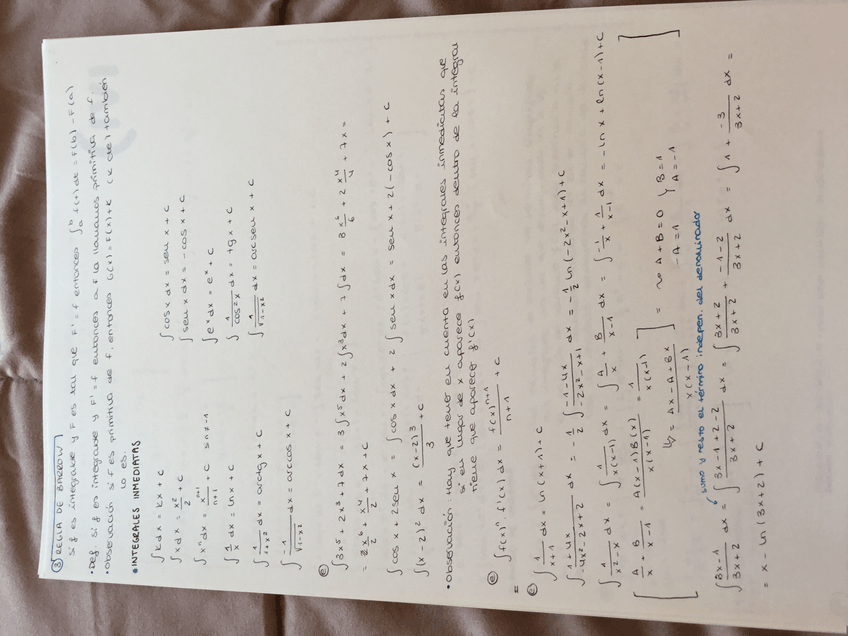 ③ REGLA DE BARROW
Si f es integrable y F es tal que F' = f entonces ∫ₐᵇ f(t)dt = F(b) - F(a)
• Def. Si f es integrable y F' = f entonces a F la llamamos primitiva de f.
• Observación si F es primitiva de f, entonces G(x) = F(x) + K (K cte) también
lo es.
• INTEGRALES INMEDIATAS
∫ k dx = kx + c
∫ x dx = x²/2 + c
∫ xⁿ dx = xⁿ⁺¹/n+1 + c si n ≠ -1
∫ 1/x dx = ln x + c
∫ 1/1+x² dx = arctg x + c
∫ -1/√1-x² dx = arccos x + c
∫ cos x dx = sen x + c
∫ sen x dx = - cos x + c
∫ eˣ dx = eˣ + c
∫ 1/cos² x dx = tg x + c
∫ 1/√1-x² dx = arcsen x + c
ⓔ
∫ 3x⁵ + 2x³ + 7 dx = 3 ∫ x⁵ dx + 2 ∫ x³ dx + 7 ∫ dx = 3 x⁶/6 + 2 x⁴/4 + 7x =
= x⁶/2 + x⁴/2 + 7x + c
∫ cos x + 2 sen x = ∫ cos x dx + 2 ∫ sen x dx = sen x + 2(-cos x) + c
∫ (x-2)² dx = (x-2)³/3 + c
• Observación Hay que tener en cuenta en las integrales inmediatas que
si en lugar de x aparece f(x) entonces dentro de la integral
tiene que aparecer f'(x)
ⓔ ∫ f(x)ⁿ · f'(x) dx = f(x)ⁿ⁺¹/n+1 + c
ⓔ
∫ 1/x+1 dx = ln(x+1) + c
∫ 1-4x/-4x²-2x+2 dx = -1/2 ∫ -1-4x/-2x²-x+1 dx = -1/2 ln(-2x²-x+1) + c
∫ 1/x²-x dx = ∫ 1/x(x-1) dx = ∫ A/x + B/x-1 dx = ∫ -1/x + 1/x-1 dx = - ln x + ln(x-1) + c
[ A/x + B/x-1 = A(x-1)B(x)/x(x-1) = 1/x(x-1)
↳ = Ax - A + Bx/x(x-1) = ~ A + B = 0 -A = 1 } B = 1 A = -1 ]
sumo y resto el término indepen. del denominador
∫ 3x-1/3x+2 dx = ∫ 3x-1+2-2/3x+2 dx = ∫ 3x+2/3x+2 + -1-2/3x+2 dx = ∫ 1 + -3/3x+2 dx =
= x - ln(3x+2) + c